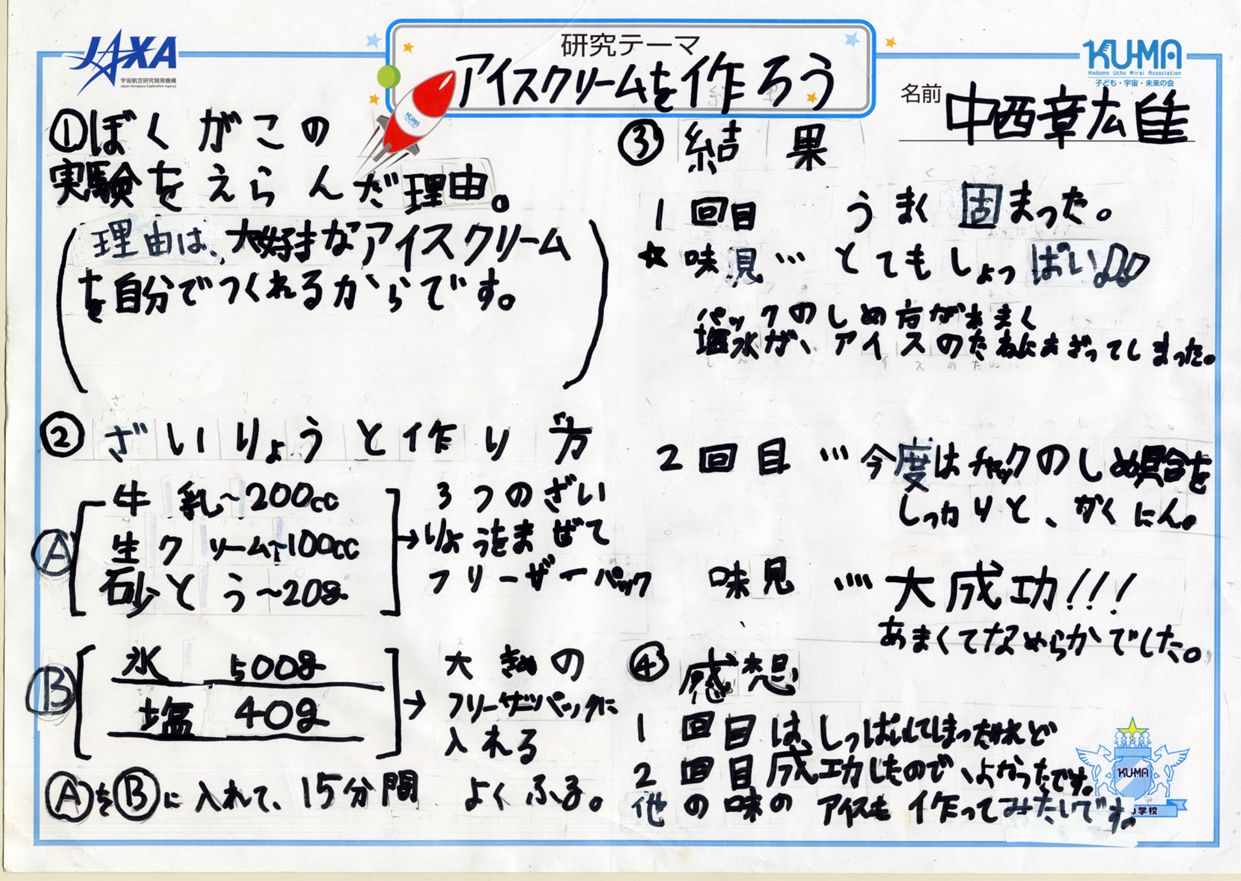 JAXA
宇宙航空研究開発機構
Japan Aerospace Exploration Agency
研究テーマ
アイスクリームを作ろう
KU-MA
Kodomo Uchu Mirai Association
子ども・宇宙・未来の会
名前 中西章広隹
①ぼくがこの
実験をえらんだ理由。
理由は、大好きなアイスクリーム
を自分でつくれるからです。
② ざいりょうと作り方
Ⓐ
牛乳~200cc
生クリーム~100cc
砂とう~20g
→3つのざい
りょうをまぜて
フリーザーパック
Ⓑ
氷 500g
塩 40g
→大きめの
フリーザーパックに
入れる
ⒶをⒷに入れて、15分間 よくふる。
③ 結果
1回目 うまく固まった。
★味見…とてもしょっぱい♫
パックのしめ方があまく
塩水が、アイスのたねにまざってしまった。
2回目…今度はチャックのしめ具合を
しっかりと、かくにん。
味見…大成功!!!
あまくてなめらかでした。
④ 感想
1回目は、しっぱいしてしまったけれど
2回目成功したので、よかったです。
他の味のアイスも作ってみたいです。
KU-MA
学校